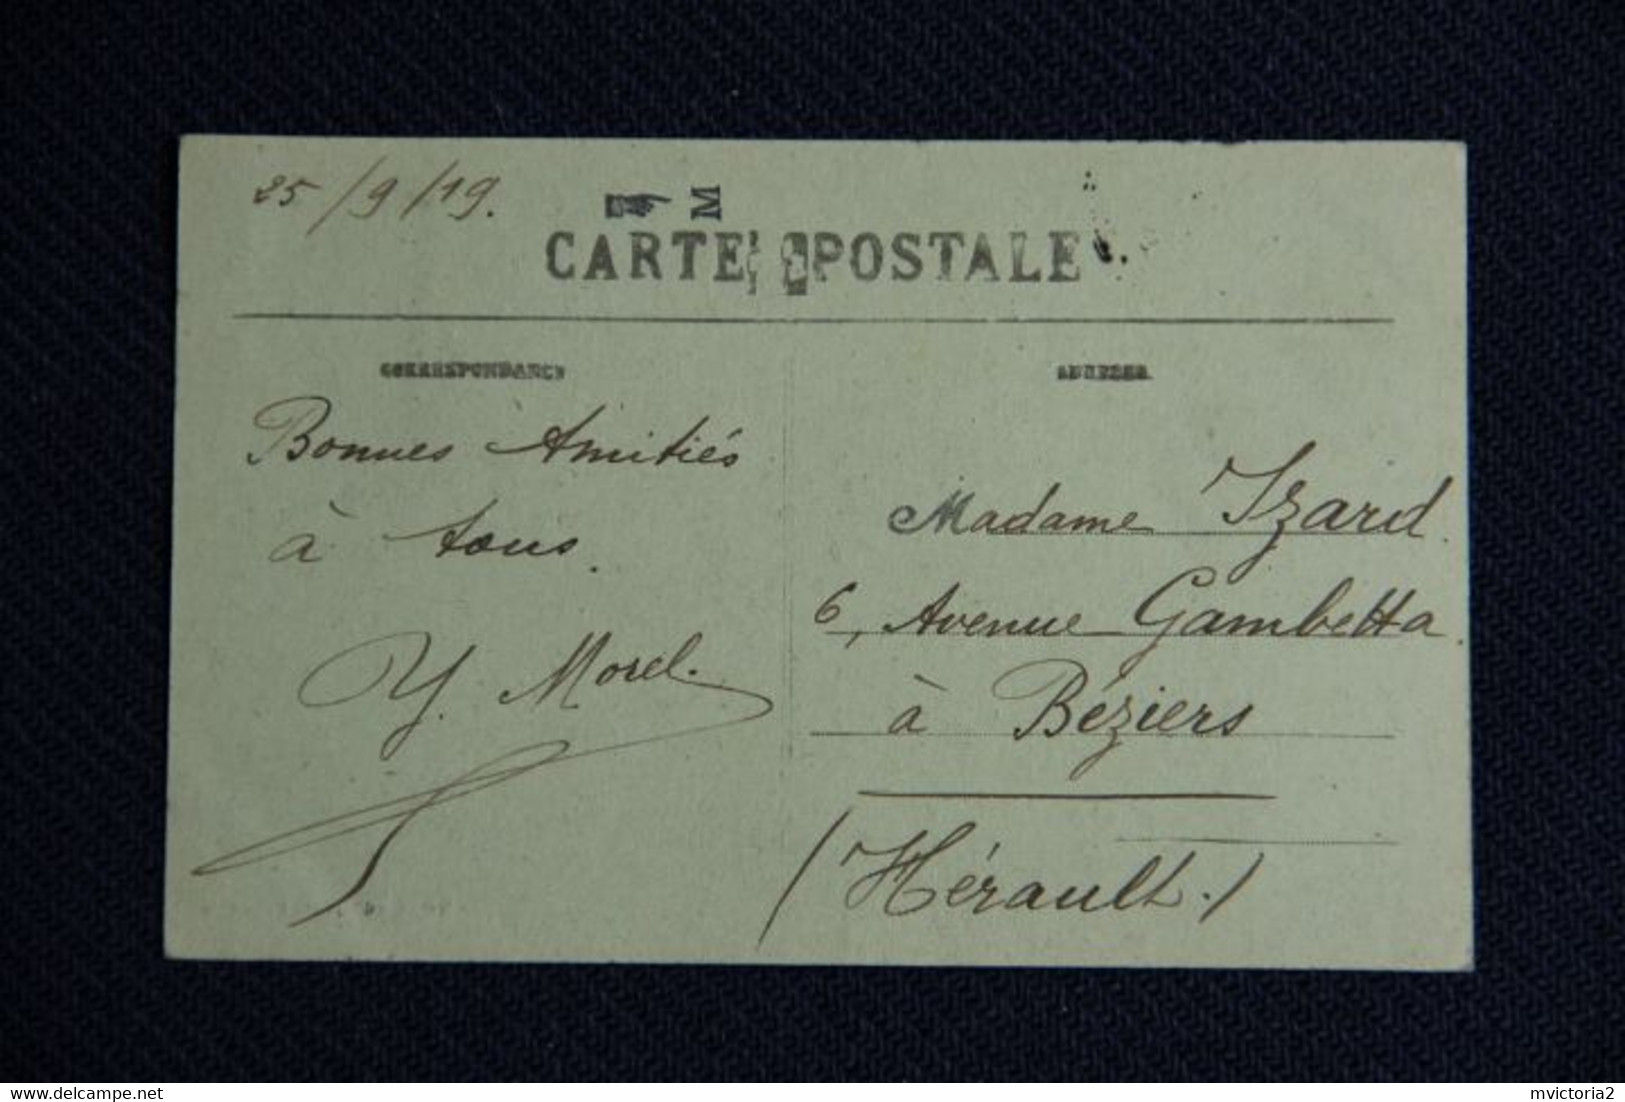 25/9/19.
M
CARTE POSTALE
CORRESPONDANCE
ADRESSE
Bonnes Amitiés
à tous.
Y. Morel.
Madame Izard.
6, Avenue Gambetta.
à Béziers
(Hérault.)
delcampe.com
mvictoria2